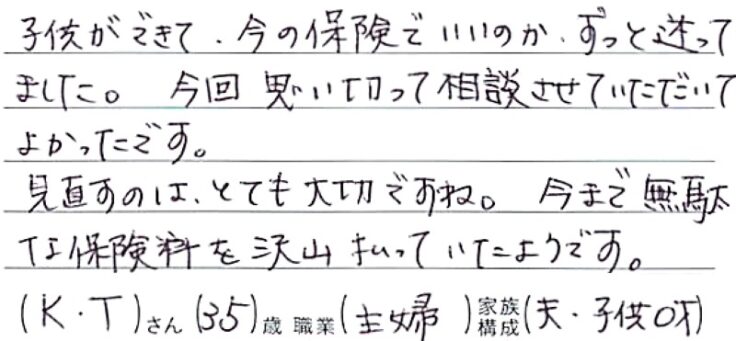 子供ができて、今の保険でいいのか、ずっと迷って
ました。 今回 思い切って相談させていただいて
よかったです。
見直すのは、とても大切ですね。 今まで無駄
な保険料を沢山払っていたようです。
(K・T)さん(35)歳 職業(主婦 )家族構成(夫・子供0才)